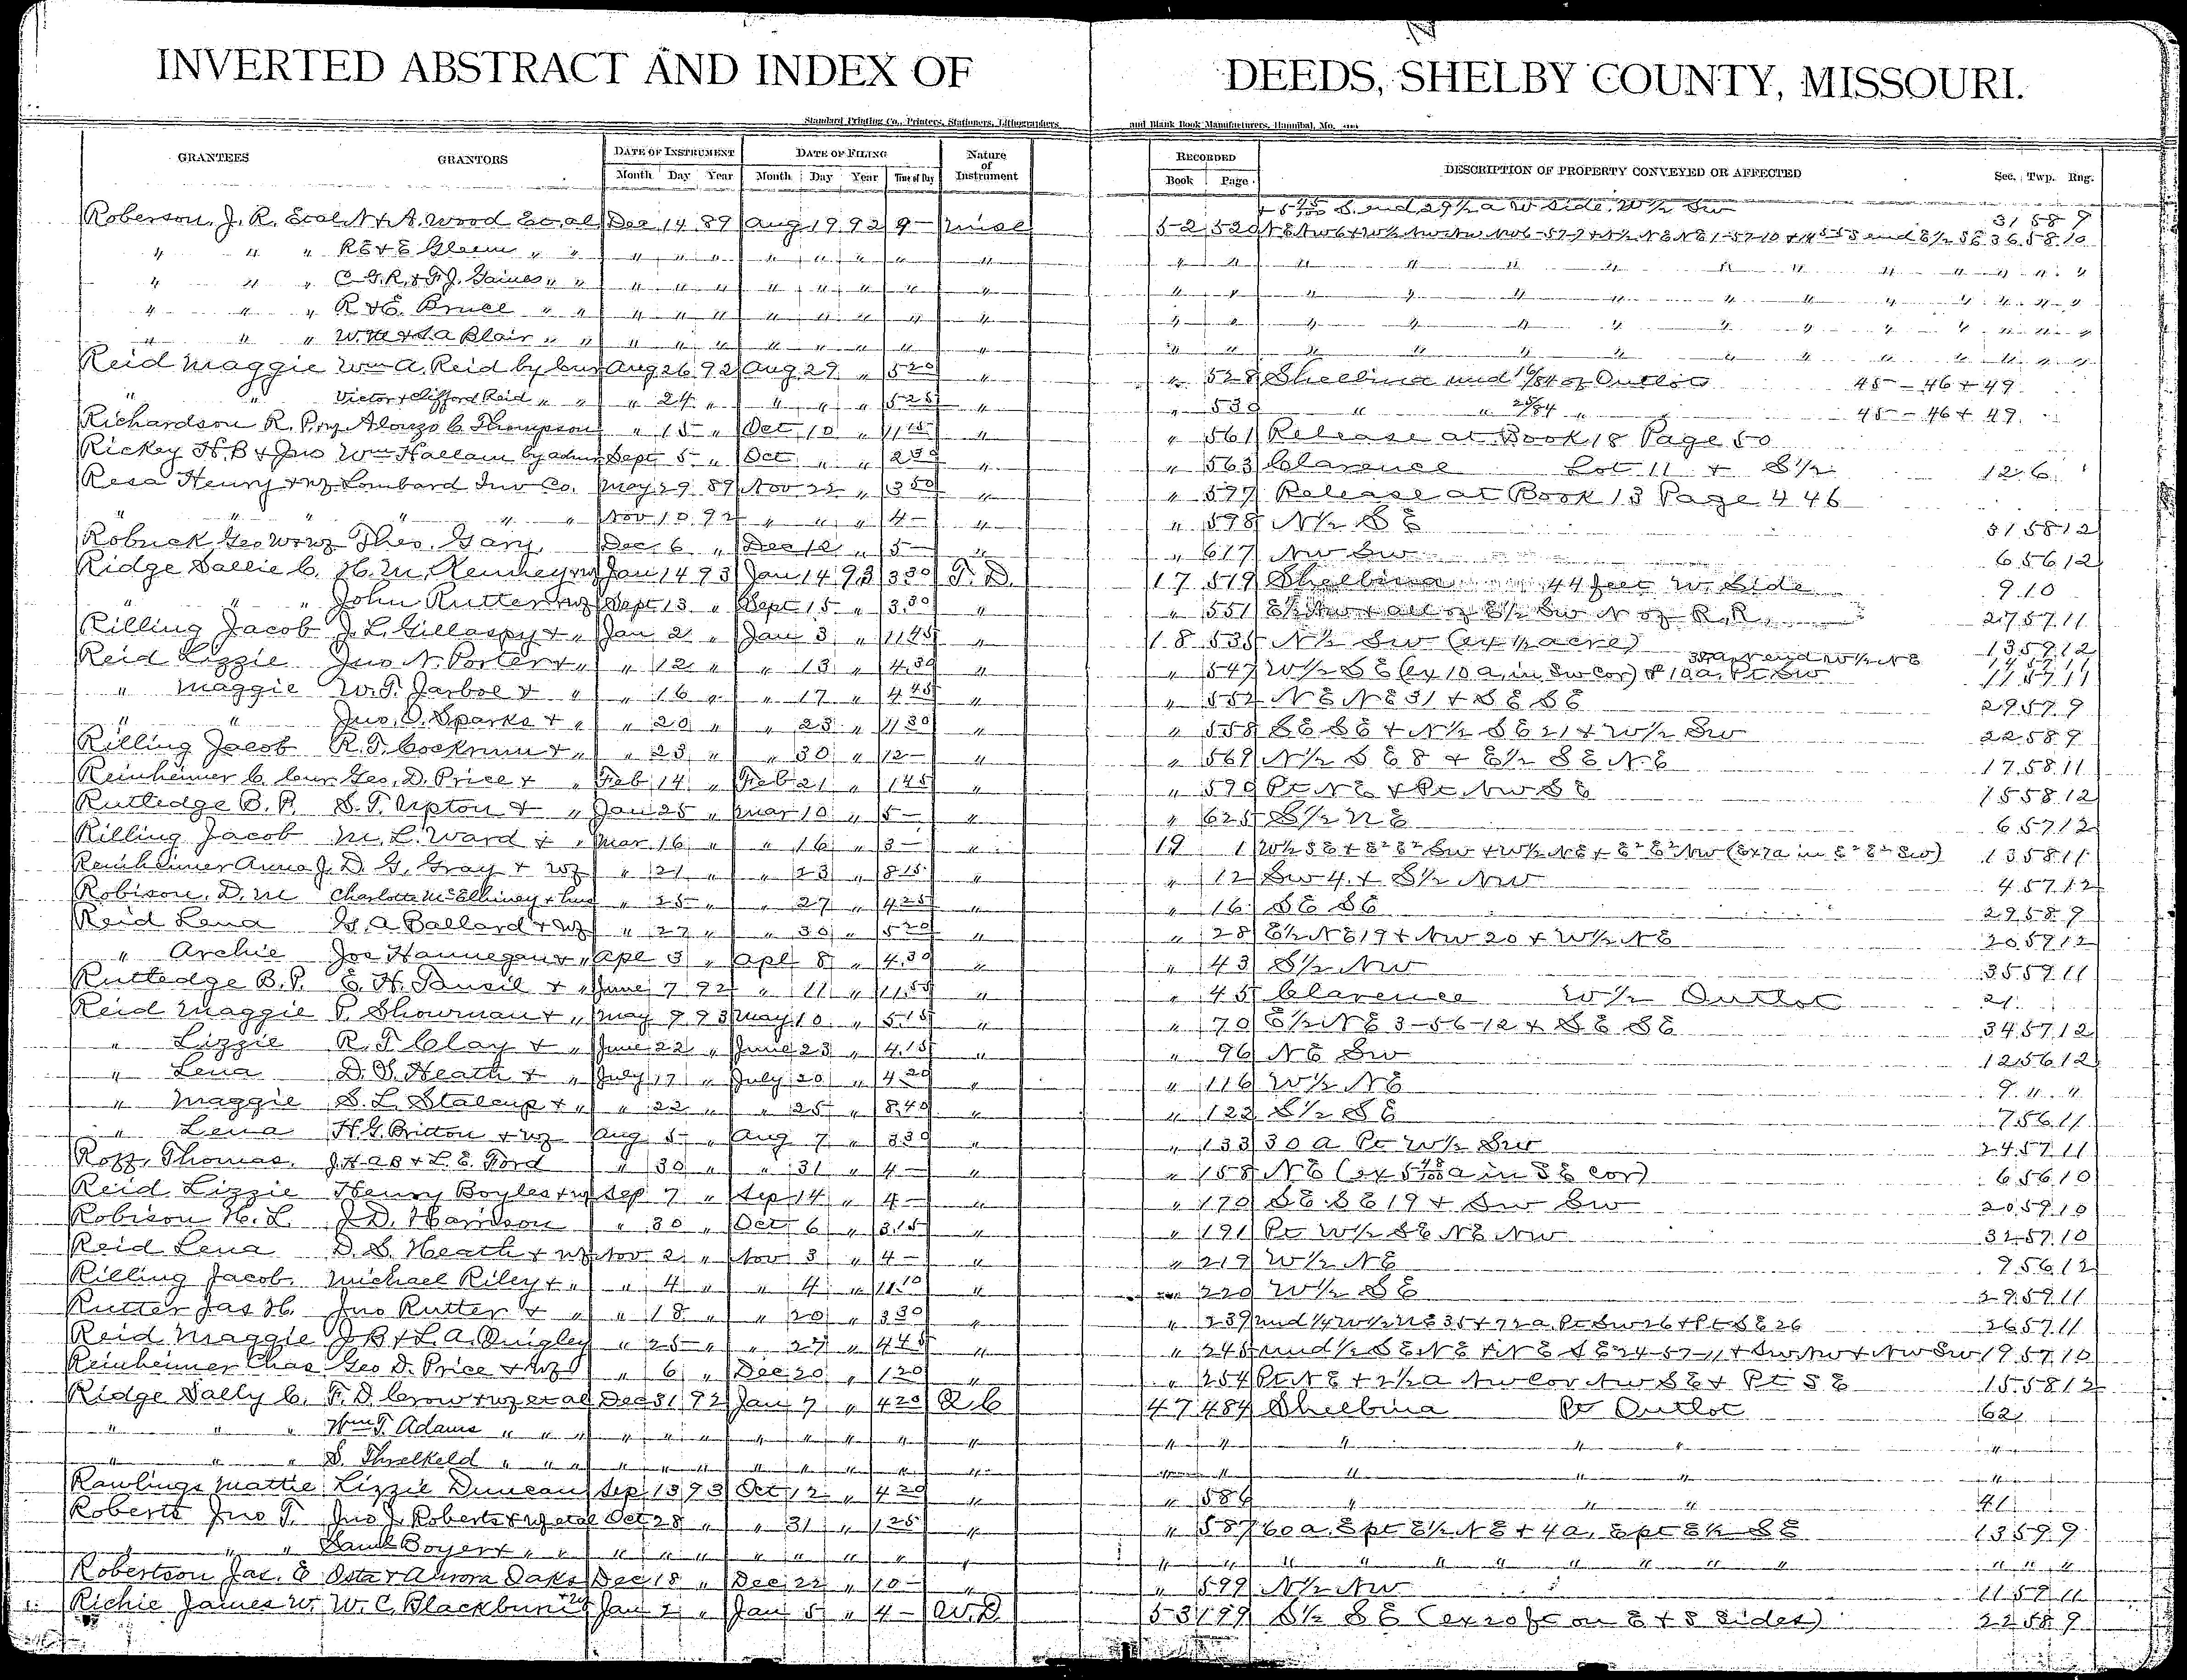 INVERTED ABSTRACT AND INDEX OF DEEDS, SHELBY COUNTY, MISSOURI.
Standard Printing Co., Printers, Stationers, Lithographers and Blank Book Manufacturers, Hannibal, Mo.
GRANTEES GRANTORS DATE OF INSTRUMENT DATE OF FILING Nature of Instrument RECORDED DESCRIPTION OF PROPERTY CONVEYED OR AFFECTED Sec. Twp. Rng.
Month Day Year Month Day Year Time of Day Book Page
+ 5 45/100 S. end, 29 1/2 a W side. W 1/2 Sw 31 58 9
Roberson, J. R. Et al N & A. Wood Et al Dec 14 89 Aug 19 92 9 – Misc 52 520 NE Nw 6 + W 1/2 Nw Nw 6-57-9 + N 1/2 NE NE 1-57-10 + S end E 1/2 SE 36 58 10
" " " R E & E Gleen " " " " " " " " " " " " " " " " " " " " " "
" " " C. G. R. & F. J. Gaines " " " " " " " " " " " " " " " " " " " " " "
" " " R & E. Bruce " " " " " " " " " " " " " " " " " " " " " "
" " " W. M & S. A Blair " " " " " " " " " " " " " " " " " " " " " "
Reid Maggie Wm A. Reid by cur Aug 26 92 Aug 29 " 5 20 " " 528 Shelbina und 16/84 of Outlots 45 – 46 + 49
" " Victor & Clifford Reid " " " 24 " " " " 5 25 " " 530 " " 25/84 " 45 – 46 + 49
Richardson R. P. Alonzo C Thompson " 15 " Oct 10 " 11 15 " " 561 Release at Book 18 Page 50
Rickey H. B & Jno Wm Hallam by admr Sept 5 " Oct " " 2 30 " " 563 Clarence Lot 11 + S 1/2 12 6
Resa Henry & wf Lombard Inv Co. May 29 89 Nov 22 " 3 50 " " 597 Release at Book 13 Page 446
" " " " " " Nov 10 92 " " " 4 – " " 598 N 1/2 SE 31 58 12
Robuck, Geo W & wf Theo. Gary Dec 6 " Dec 12 " 5 – " " 617 Nw Sw 6 56 12
Ridge Sallie C. H. M. Kenney & wf Jan 14 93 Jan 14 93 3 30 T. D. 17 519 Shelbina 44 feet W. Side 9 10
" " " John Rutter & wf Sept 13 " Sept 15 " 3 30 " " 551 E 1/2 Nw + all of E 1/2 Sw N of R. R. 27 57 11
Rilling Jacob J. L. Gillaspy & " Jan 2 " Jan 3 " 11 45 " 18 535 N 1/2 Sw (ex 1/2 acre) 13 59 12
Reid Lizzie Jno N. Porter & " " 12 " " 13 " 4 30 " " 547 W 1/2 SE (ex 10 a, in Sw cor) + 10 a, Pt Sw 30 a N end W 1/2 NE 14 57 11 11 57 11
" Maggie W. T. Jarboe & " " 16 " " 17 " 4 45 " " 552 NE NE 31 + SE SE 29 57 9
" " Jno. O. Sparks & " " 20 " " 23 " 11 30 " " 558 SE SE + N 1/2 SE 21 + W 1/2 Sw 22 58 9
Rilling Jacob R. T. Cockrum & " " 23 " " 30 " 12 – " " 569 N 1/2 SE 8 + E 1/2 SE NE 17 58 11
Reinheimer C. Cur Geo. D. Price & " Feb 14 " Feb 21 " 1 45 " " 590 Pt NE + Pt Nw SE 15 58 12
Rutledge B. P. S. T. Upton & " Jan 25 " Mar 10 " 5 – " " 625 S 1/2 NE 6 57 12
Rilling Jacob M. L. Ward & " Mar 16 " " 16 " 3 – " 19 1 W 1/2 SE + E2 E2 Sw + W 1/2 NE + E2 E2 Nw (Ex 7a in E2 E2 Sw) 13 58 11
Reinheimer Anna J. D. G. Gray & wf " 21 " " 23 " 8 15 " " 12 Sw 4 + S 1/2 NW 4 57 12
Robison, D. M Charlotte McElhiney & hus " 25 " " 27 " 4 25 " " 16 SE SE 29 58 9
Reid Lena G. A Ballard & wf " 27 " " 30 " 5 20 " " 28 E 1/2 NE 19 + Nw 20 + W 1/2 NE 20 59 12
" Archie Jos Hannegan & " Apl 3 " Apl 8 " 4 30 " " 43 S 1/2 Nw 35 59 11
Rutledge B. P. E. H. Tansil & " June 7 92 " 11 " 11 55 " " 45 Clarence W 1/2 Outlot 21
Reid Maggie P. Showman & " May 9 93 May 10 " 5 15 " " 70 E 1/2 NE 3-56-12 + SE SE 34 57 12
" Lizzie R. T. Clay & " June 22 " June 23 " 4 15 " " 96 NE Sw 12 56 12
" Lena D. S. Heath & " July 17 " July 20 " 4 20 " " 116 W 1/2 NE 9 " "
" Maggie S. L. Stalcup & " " 22 " " 25 " 8 40 " " 122 S 1/2 SE 7 56 11
" Lena H. G. Britton & wf Aug 5 " Aug 7 " 3 30 " " 133 30 a Pt W 1/2 Sw 24 57 11
Roff, Thomas. J. H & L. E. Ford " 30 " " 31 " 4 – " " 158 NE (ex 5 48/100 a in SE cor) 6 56 10
Reid Lizzie Henry Boyles & wf Sep 7 " Sep 14 " 4 – " " 170 SE SE 19 + Sw Sw 20 59 10
Robison H. L. J. D. Harrison " 30 " Oct 6 " 3 15 " " 191 Pt W 1/2 SE NE Nw 32 57 10
Reid Lena D. S. Heath & wf Nov 2 " Nov 3 " 4 – " " 219 W 1/2 NE 9 56 12
Rilling Jacob Michael Riley & " " 4 " " 4 " 11 10 " " 220 W 1/2 SE 29 59 11
Rutter Jas H. Jno Rutter & " " 18 " " 20 " 3 30 " " 239 und 1/4 W 1/2 NE 35 + 72 a. Pt Sw 26 + Pt SE 26 26 57 11
Reid Maggie J. B & L. A. Quigley " 25 " " 27 " 4 45 " " 245 und 1/2 SE NE + NE SE 24-57-11 + Sw Nw + Nw Sw 19 57 10
Reinheimer Chas Geo D. Price & wf " 6 " Dec 20 " 1 20 " " 254 Pt NE + 2 1/2 a Nw Cor Nw SE + Pt SE 15 58 12
Ridge Sally C. F. D. Crow & wf et al Dec 31 92 Jan 7 " 4 20 Q. C 47 484 Shelbina Pt Outlot 62
" " " Wm T. Adams " " " " " " " " " " " " " " " " "
" " " S. Threlkeld " " " " " " " " " " " " " " " " "
Rawlings Mattie Lizzie Duncan Sep 13 93 Oct 12 " 4 20 " " 586 " " " 41
Roberts Jno T. Jno J. Roberts & wf et al Oct 28 " " 31 " 1 25 " " 587 60 a, E pt E 1/2 NE + 4 a, E pt E 1/2 SE 13 59 9
" " " Saml Boyer & " " " " " " " " " " " " " " " " " " " " " " "
Robertson Jas. E Osta & Aurora Oaks Dec 18 " Dec 22 " 10 – " " 599 N 1/2 Nw 11 59 11
Richie James W. W. C. Blackburn & wf Jan 2 " Jan 5 " 4 – W. D 53 199 S 1/2 SE (ex 20 ft on E + S Sides) 22 58 9